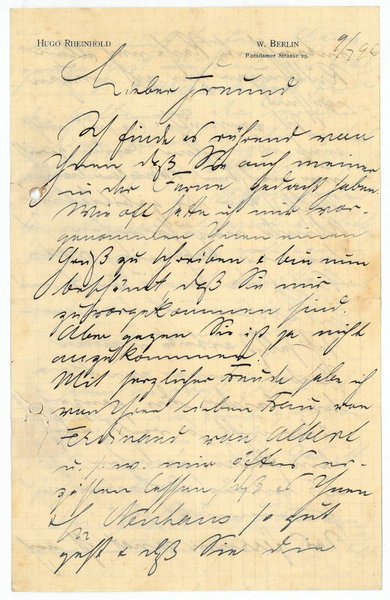 HUGO RHEINHOLD
W. BERLIN
Potsdamer Strasse 29.
9/7 96
Lieber Freund
Ich finde es rührend von
Ihnen daß Sie auch meiner
in der Ferne gedacht haben
Wie oft hatte ich mir vor-
genommen Ihnen einen
Gruß zu schreiben & bin nun
beschämt daß Sie mir
zuvorgekommen sind.
Aber gegen Sie ist ja nicht
anzukommen!
Mit herzlicher Freude habe ich
von Ihrer lieben Frau, von
Ferdinand von Albert
u. s. w. mir öfters er-
zählen lassen daß es Ihnen
in Neuhaus so gut
geht & daß Sie die